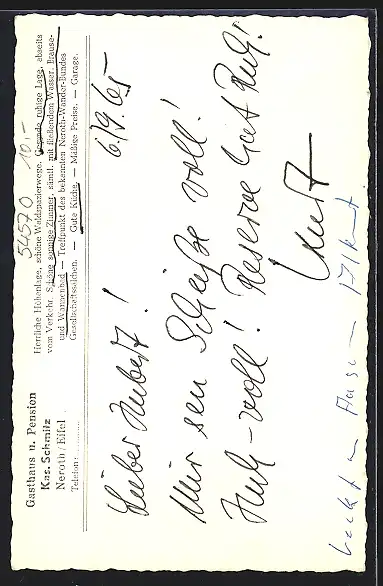 Gasthaus u. Pension
Kas. Schmitz
Neroth/Eifel
Telefon:
54570 10,-
Herrliche Höhenlage, schöne Waldspazierwege. Gesunde ruhige Lage, abseits
vom Verkehr. Schöne sonnige Zimmer, sämtl. mit fließendem Wasser. Brause-
und Wannenbad — Treffpunkt des bekannten Neroth-Wander-Bundes
Gesellschaftssälchen. — Gute Küche. — Mäßige Preise. — Garage.
6.9.65
Lieber Hubert!
Mir sen Scheiße voll!
voll! Reserve hat Ruh!
Kurt